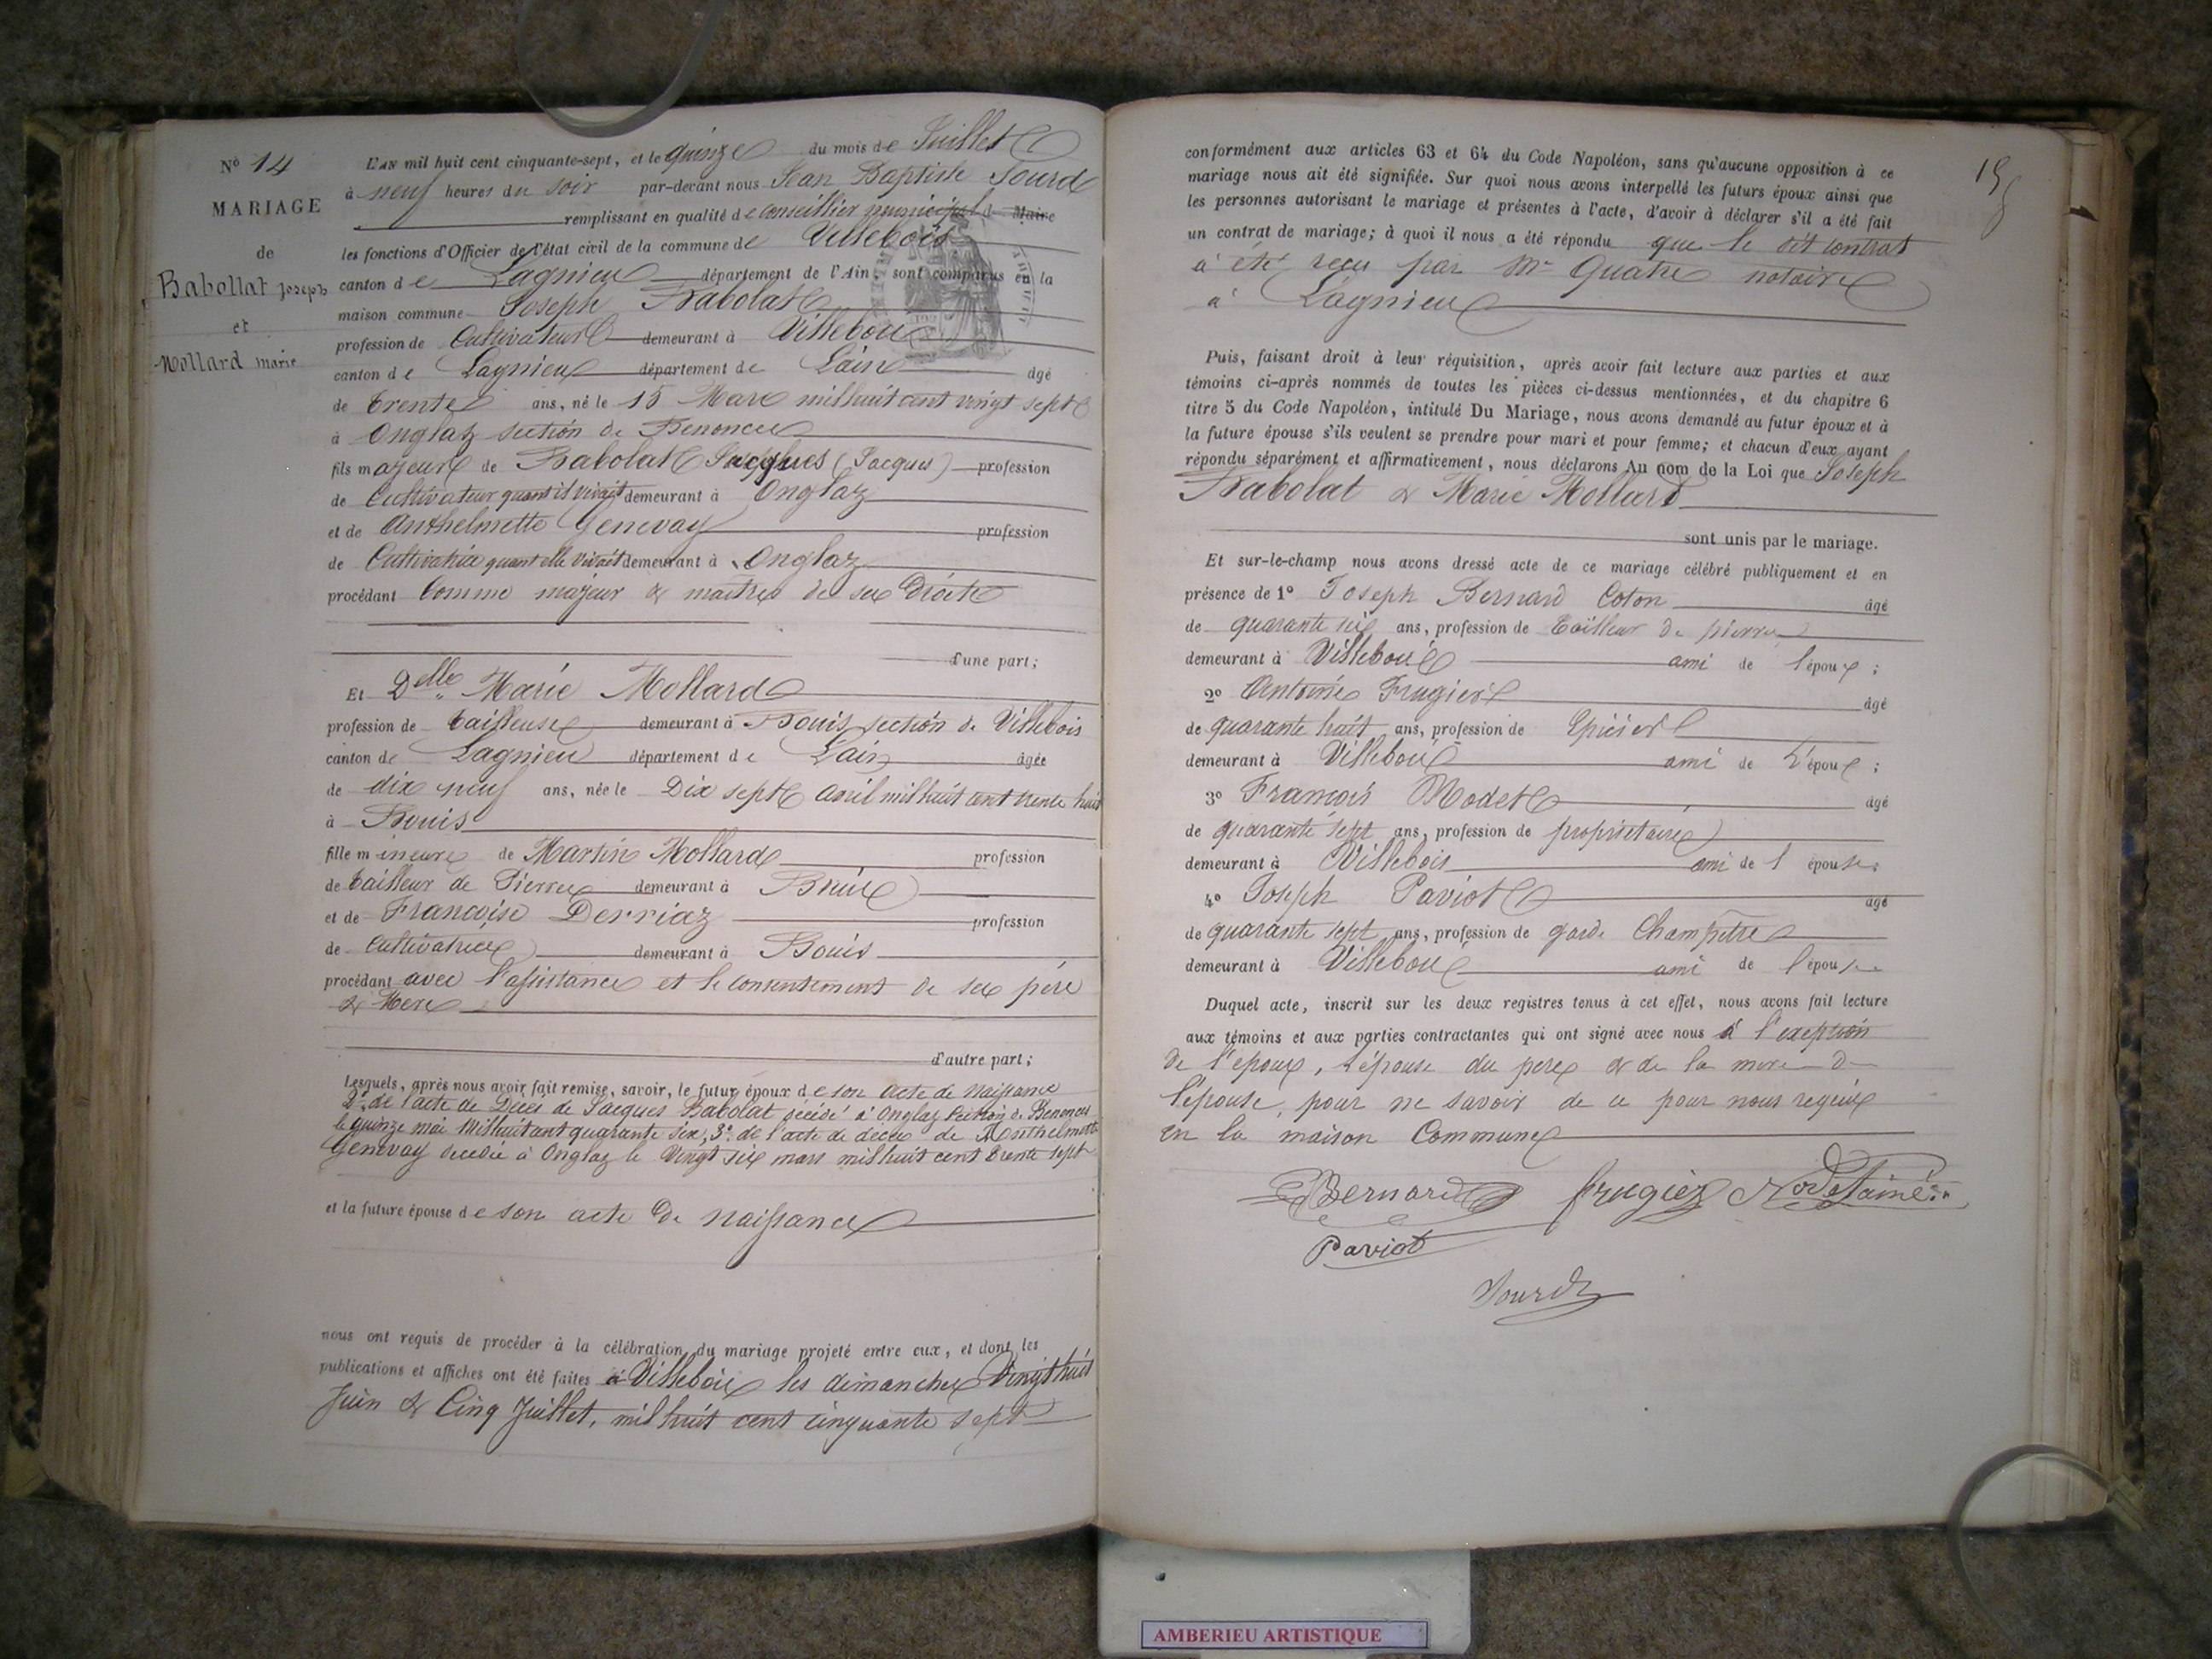 Nº 14
MARIAGE
de
Babollat joseph
et
Mollard marie
L'AN mil huit cent cinquante-sept, et le quinze du mois de Juillet
à neuf heures du soir par-devant nous Jean Baptiste Sourd
remplissant en qualité de conseillier municipal de Maire
les fonctions d'Officier de l'état civil de la commune de Villebois
canton de Lagnieu département de l'Ain, sont comparus en la
maison commune Joseph Babolat
profession de Cultivateur demeurant à Villebois
canton de Lagnieu département de Lain âgé
de trente ans, né le 15 Mars mil huit cent vingt sept
à Onglaz section de Benonces
fils majeur de Babolat Jacques (Jacques) profession
de Cultivateur quant il vivait demeurant à Onglaz
et de Anthelmette Genevay profession
de Cultivatrice quant elle vivait demeurant à Onglaz
procédant Comme majeur & maitre de ses Droits
d'une part;
Et Delle Marie Mollard
profession de tailleuse demeurant à Bouis section de Villebois
canton de Lagnieu département de Lain âgée
de dix neuf ans, née le Dix sept avril mil huit cent trente huit
à Bouis
fille mineure de Martin Mollard profession
de tailleur de Pierres demeurant à Bouis
et de Françoise Derriaz profession
de Cultivatrice demeurant à Bouis
procédant avec l'assistance et le consentement de ses père
& Mere
d'autre part;
Lesquels, après nous avoir fait remise, savoir, le futur époux de son acte de naissance
2º de l'acte de Décès de Jacques Babolat décédé à Onglaz section de Benonces
le quinze mai mil huit cent quarante six, 3º de l'acte de décès de Anthelmette
Genevay décédée à Onglaz le vingt six mars mil huit cent trente sept
et la future épouse de son acte de naissance
nous ont requis de procéder à la célébration du mariage projeté entre eux, et dont les
publications et affiches ont été faites à Villebois les dimanches vingt huit
Juin & Cinq Juillet, mil huit cent cinquante sept
15
conformément aux articles 63 et 64 du Code Napoléon, sans qu'aucune opposition à ce
mariage nous ait été signifiée. Sur quoi nous avons interpellé les futurs époux ainsi que
les personnes autorisant le mariage et présentes à l'acte, d'avoir à déclarer s'il a été fait
un contrat de mariage; à quoi il nous a été répondu que le dit contrat
a été reçu par Mr Quatre notaire
à Lagnieu
Puis, faisant droit à leur réquisition, après avoir fait lecture aux parties et aux
témoins ci-après nommés de toutes les pièces ci-dessus mentionnées, et du chapitre 6
titre 5 du Code Napoléon, intitulé Du Mariage, nous avons demandé au futur époux et à
la future épouse s'ils veulent se prendre pour mari et pour femme; et chacun d'eux ayant
répondu séparément et affirmativement, nous déclarons Au nom de la Loi que Joseph
Babolat & Marie Mollard
sont unis par le mariage.
Et sur-le-champ nous avons dressé acte de ce mariage célébré publiquement et en
présence de 1º Joseph Bernard Coton âgé
de quarante six ans, profession de tailleur de pierres
demeurant à Villebois ami de l'époux;
2º Antoine Frugier âgé
de quarante huit ans, profession de Epicier
demeurant à Villebois ami de L'époux;
3º François Rodet âgé
de quarante sept ans, profession de propriétaire
demeurant à Villebois ami de l épouse;
4º Joseph Paviot âgé
de quarante sept ans, profession de garde Champêtre
demeurant à Villebois ami de l'épouse
Duquel acte, inscrit sur les deux registres tenus à cet effet, nous avons fait lecture
aux témoins et aux parties contractantes qui ont signé avec nous à l'exeption
de l'epoux, L'épouse du pere & de la mere de
l'épouse, pour ne savoir de ce pour nous requis
en la maison Commune
Bernard frugier Rodet ainé
Paviot
Sourd
AMBERIEU ARTISTIQUE